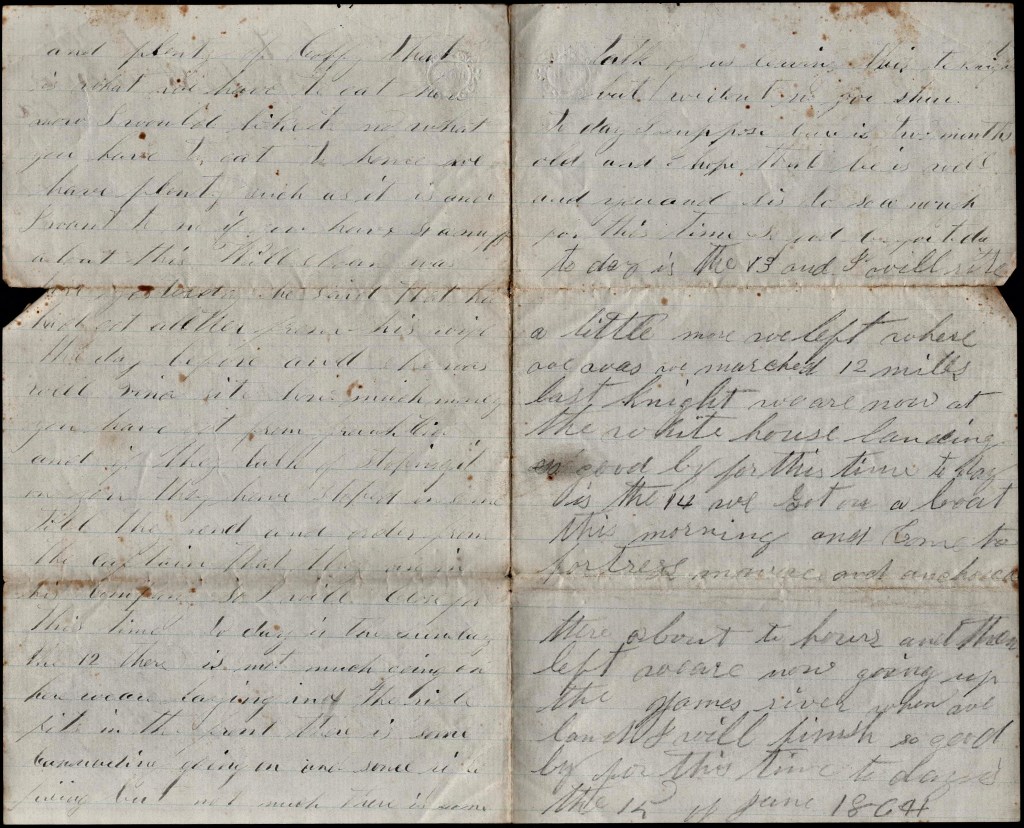 and plenty of Coffy that
is what we have to eat here
now I would like to no what
you have to eat to home we
have plenty such as it is and
I want to no if you have
about this Will was
he said that he
all the from his wife
the day before and he was
well rite how much money
you have got from
and if they talk of stoping it
on you they have stoped
till the send and order from
the captain that they are in
his company so I will close for
this time to day is the sunday
the 12 there is not much doing on
here we are laying in the rifle
pits in the front there is some
cannonadin going on and some
firing but not much there is some
talk of us leving this to night
but no for shure
to day I suppose is two months
old and I hope that he is well
and you and sis to so much
for this time good by to day
to day is the 13 and I will rite
a little more we left where
we was we marched 12 miles
last knight we are now at
the white house landing
so good by for this time to day
is the 14 we got on a boat
this morning and Come to
fortress monroe and anchored
there about to hours and then
left we are now going up
the James river when we
land I will finish so good
by for this time to day is
the 15 of June 1864